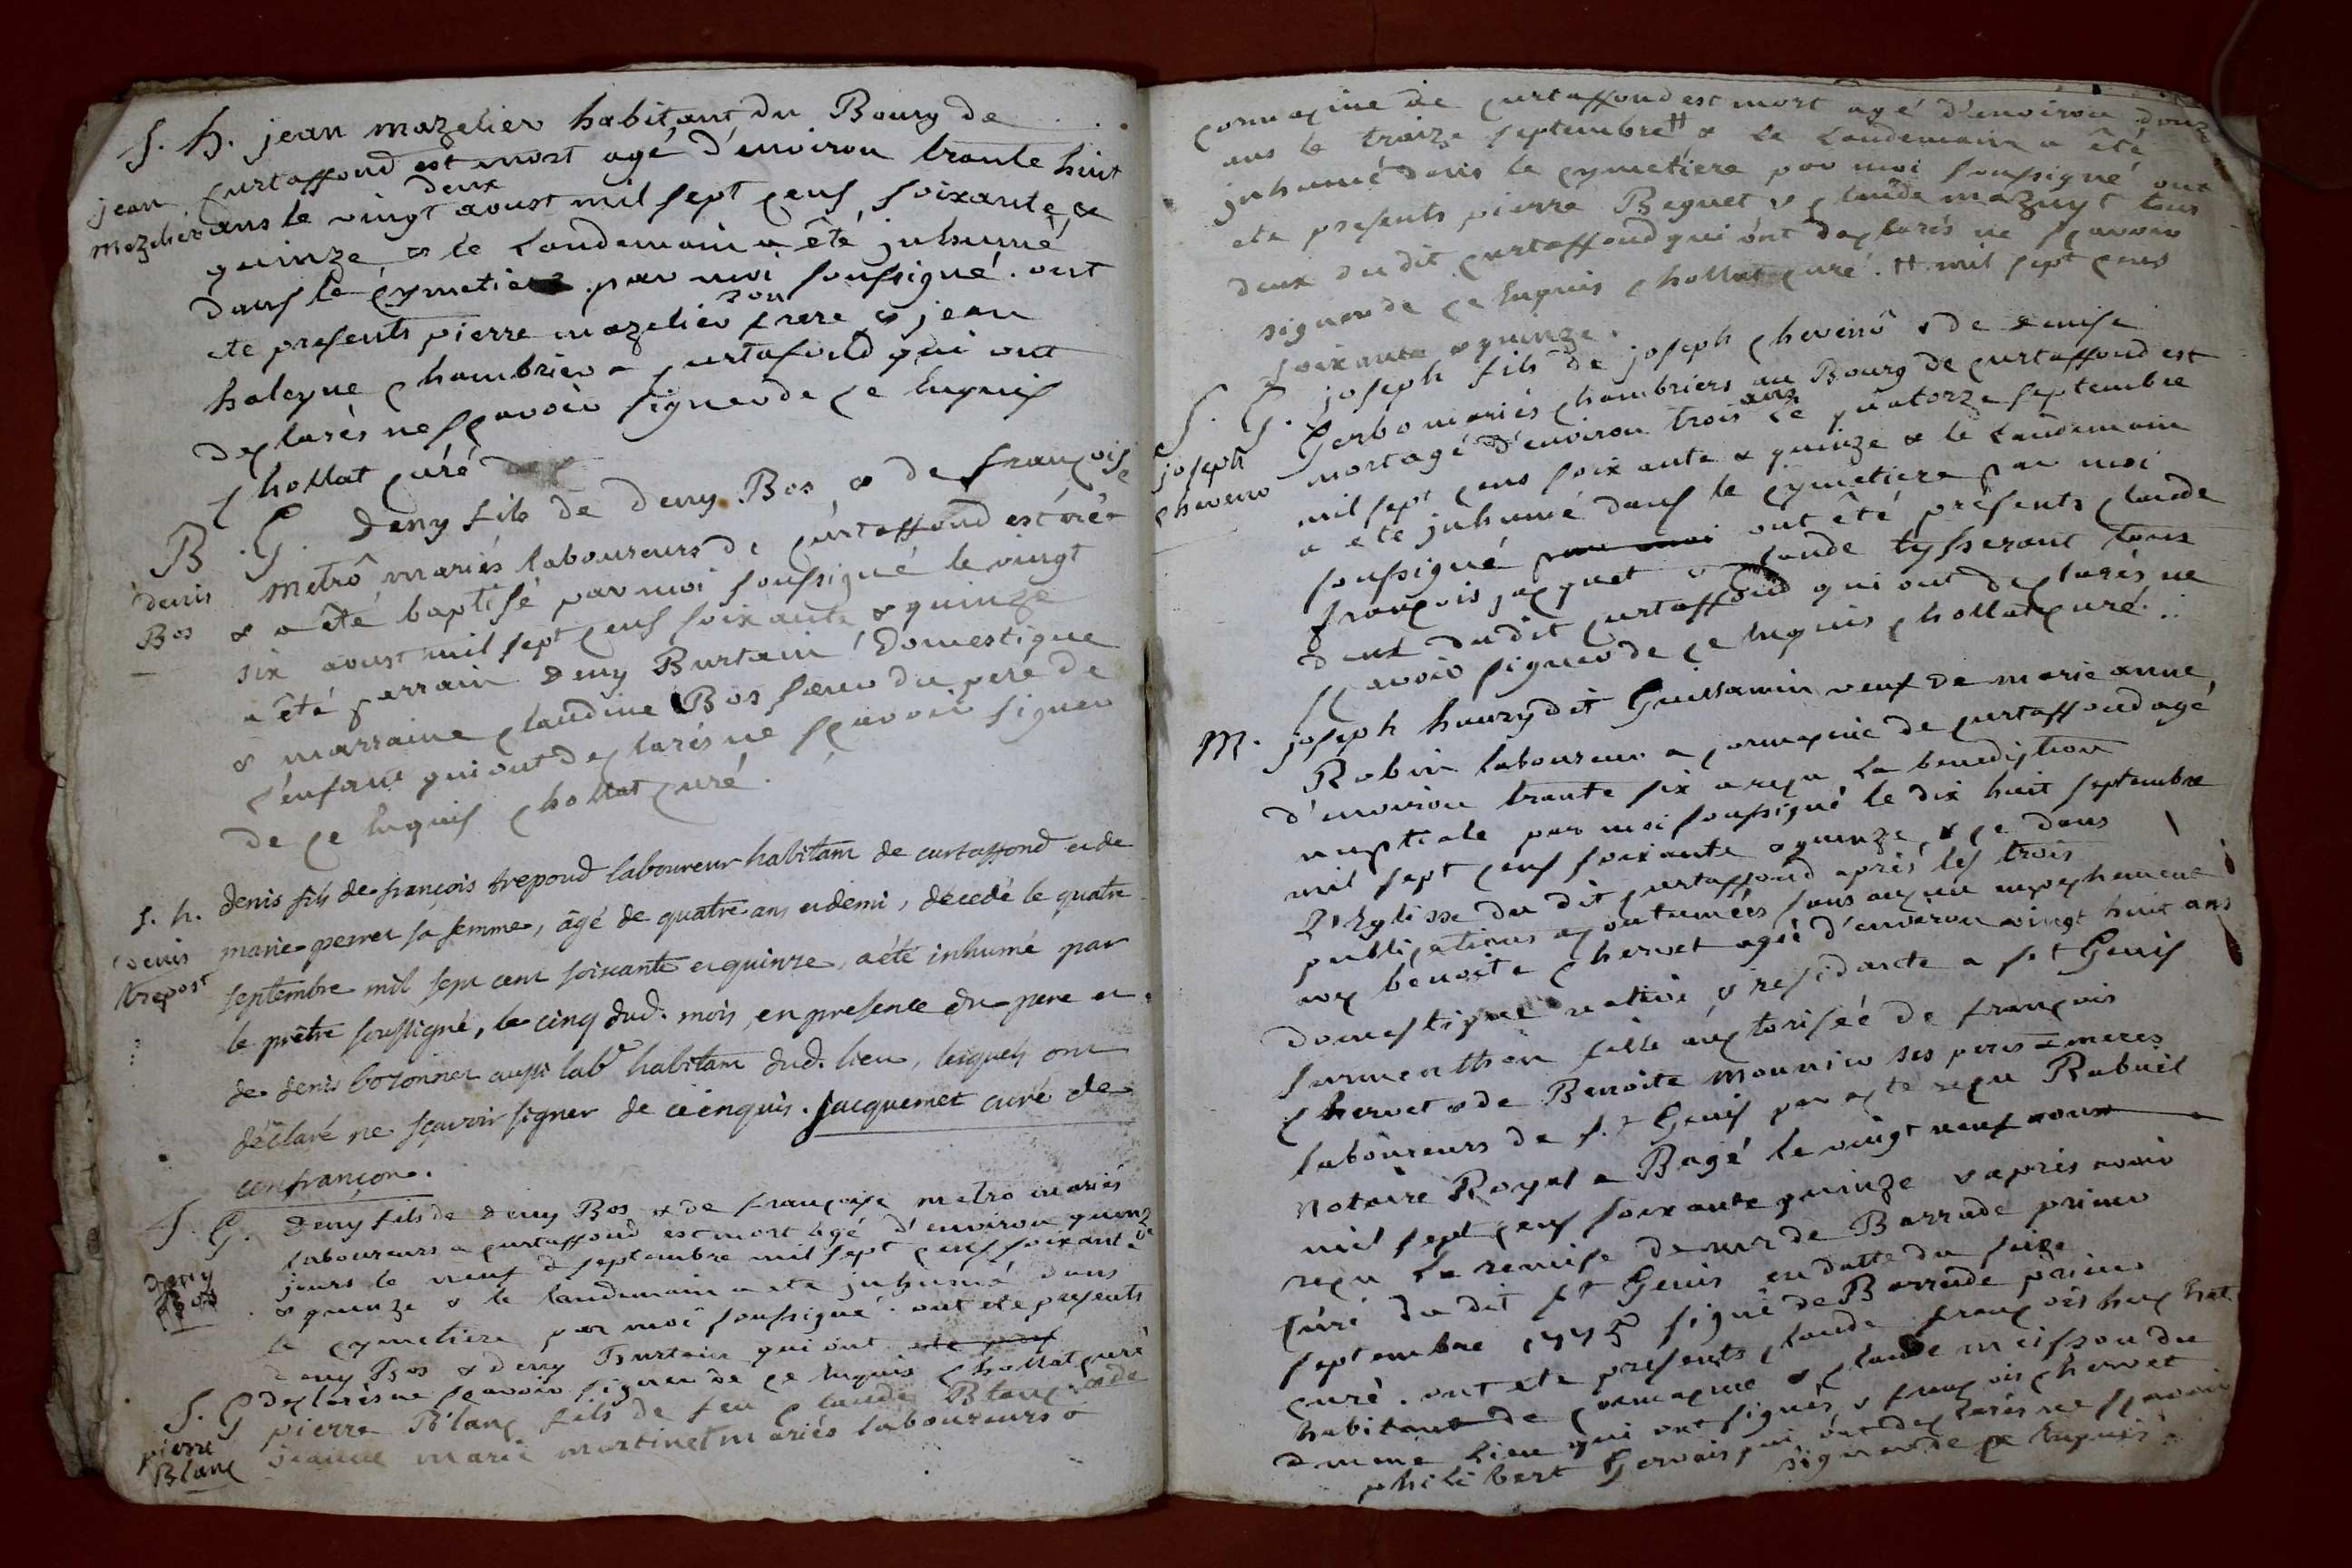 S. h. jean mazelier habitant du Bourg de
jean Curtaffond est mort agé d'environ trante huit
mazelier ans le vingt deux aoust mil sept cens soixante &
quinze & le landemain a êté inhumé
dans le cymetiere par moi soussigné. ont
ete presents pierre mazelier son frere & jean
chambrier a curtafond qui ont
declarés ne scavoir signer de ce enquis
chollat curé
B. G. Deny fils de deny Bos & de françoise
metrô mariés laboureurs de curtaffond est né
denis & a êté baptisé par moi soussigné le vingt
Bos six aoust mil sept cens soixante & quinze
a êté parrain deny Burtain Domestique
& marraine claudine Bos soeur du pere de
l'enfant qui ont declarés ne scavoir signer
de ce enquis chollat curé.
S. h. denis fils de françois trepoud laboureur habitant de curtaffond et de
denis marie perret sa femme, âgé de quatre ans et demi, décedé le quatre
trepost septembre mil sept cent soixante et quinze, a été inhumé par
le prêtre soussigné, le cinq dud. mois, en presence du pere et
de denis bozonnet aussi labr habitant dud. lieu, lesquels ont
déclaré ne sçavoir signer de ce enquis. Jacquemet curé de
confrançon.
S. G. Deny fils de deny Bos & de françoise metro mariés
laboureurs a curtaffond est mort agé d'environ quinze
deny jours le neuf de septembre mil sept cens soixante
Bos & quinze & le landemain a ete inhumé dans
le cymetiere par moi soussigné. ont ete presents
deny Bos & deny Burtain qui ont ete pres
declarés ne scavoir signer de ce enquis chollat curé
S. G pierre Blanc fils de feu claude Blanc & de
pierre Blanc jeanne marie martinet mariés laboureurs a
cormacine de curtaffond est mort agé d'environ douze
ans le traize septembre # & le landemain a êté
inhumé dans le cymetiere par moi soussigné ont
ete presents pierre Beguet & claude mazuyt tous
deux du dit curtaffond qui ont declarés ne scavoir
signer de ce enquis chollat curé. # mil sept cens
soixante & quinze.
S. G. joseph fils de joseph chevenô & de denise
joseph Gerbo mariés chambriers au Bourg de curtaffond est
cheveno mort agé d'environ trois ans le quatorze septembre
mil sept cens soixante & quinze & le landemain
a ete inhumé dans le cymetiere par moi
soussigné par moi ont êté présents claude
françois jacquet & claude tysserant tous
deux du dit curtaffond qui ont declarés ne
scavoir signer de ce enquis chollat curé.
M. joseph hauzy dit Guillamin veuf de marie anne
Robin laboureur a cormacine de curtaffond agé
d'environ trante six a reçu la benediction
nuptiale par moi soussigné le dix huit septembre
mil sept cens soixante & quinze, & ce dans
l'Eglisse du dit curtaffond après les trois
publications acoutumées sans aucun empechement
avec benoite chervet agée d'environ vingt huit ans
domestique native & residante a st Genis
fille auctorisée de françois
chervet & de Benoite mounier ses peres & meres
laboureurs de st Genis par acte reçu Rabuel
Notaire Royal a Bagé le vingt neuf aoust
mil sept cens soixante quinze & après avoir
reçu la remise de mr de Barrade prieur
curé du dit st Genis en datte du seize
septembre 1775 signé de Barrade prieur
curé. ont ete presents claude françois
habitant de cormacine & claude meisson du
meme lieu qui ont signés & françois chervet
philibert Gervais qui ont declarés ne scavoir
signer de ce enquis